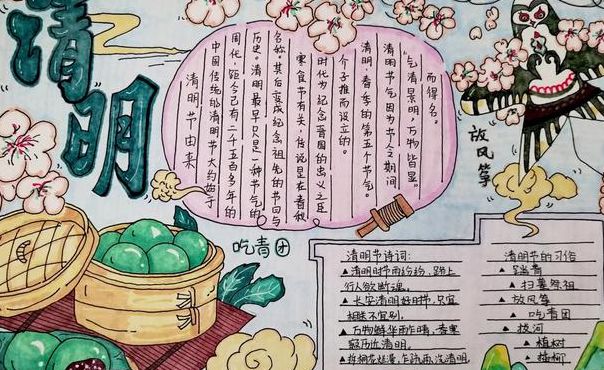 清明
清明节由来
中国传统的清明节大约始于
周代，距今已有二千五百多年的
历史。清明最早只是一种节气的
名称，其后变成纪念祖先的节日与
寒食节有关，传说是在春秋
时代为纪念晋国的忠义之臣
介子推而设立的。
清明，春季的第五个节气。
清明节气因为节令期间
“气清景明，万物皆显”
而得名。
放风筝
吃青团
清明节诗词：
▲清明时节雨纷纷，路上
行人欲断魂。
▲长安清明好时节，只宜
相送不宜别。
▲万物鲜华雨乍晴，春寒
寂历近清明。
▲拆桐花烂漫，乍疏雨洗清明。
清明节的习俗
▲踏青
▲扫墓祭祖
▲放风筝
▲吃青团
▲拔河
▲植树
▲插柳